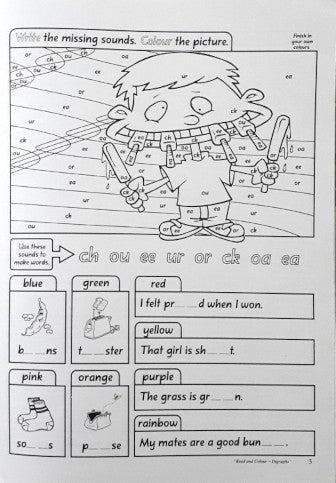 Write the missing sounds. Colour the picture.
Finish in
your own
colours
Use these
sounds to
make words.
ch ou ee ur or ck oa ea
blue
b__ __ns
green
t__ __ster
red
I felt pr__ __d when I won.
yellow
That girl is sh__ __t.
pink
so__ __s
orange
p__ __se
purple
The grass is gr__ __n.
rainbow
My mates are a good bun__ __.
"Read and Colour – Digraphs"
3